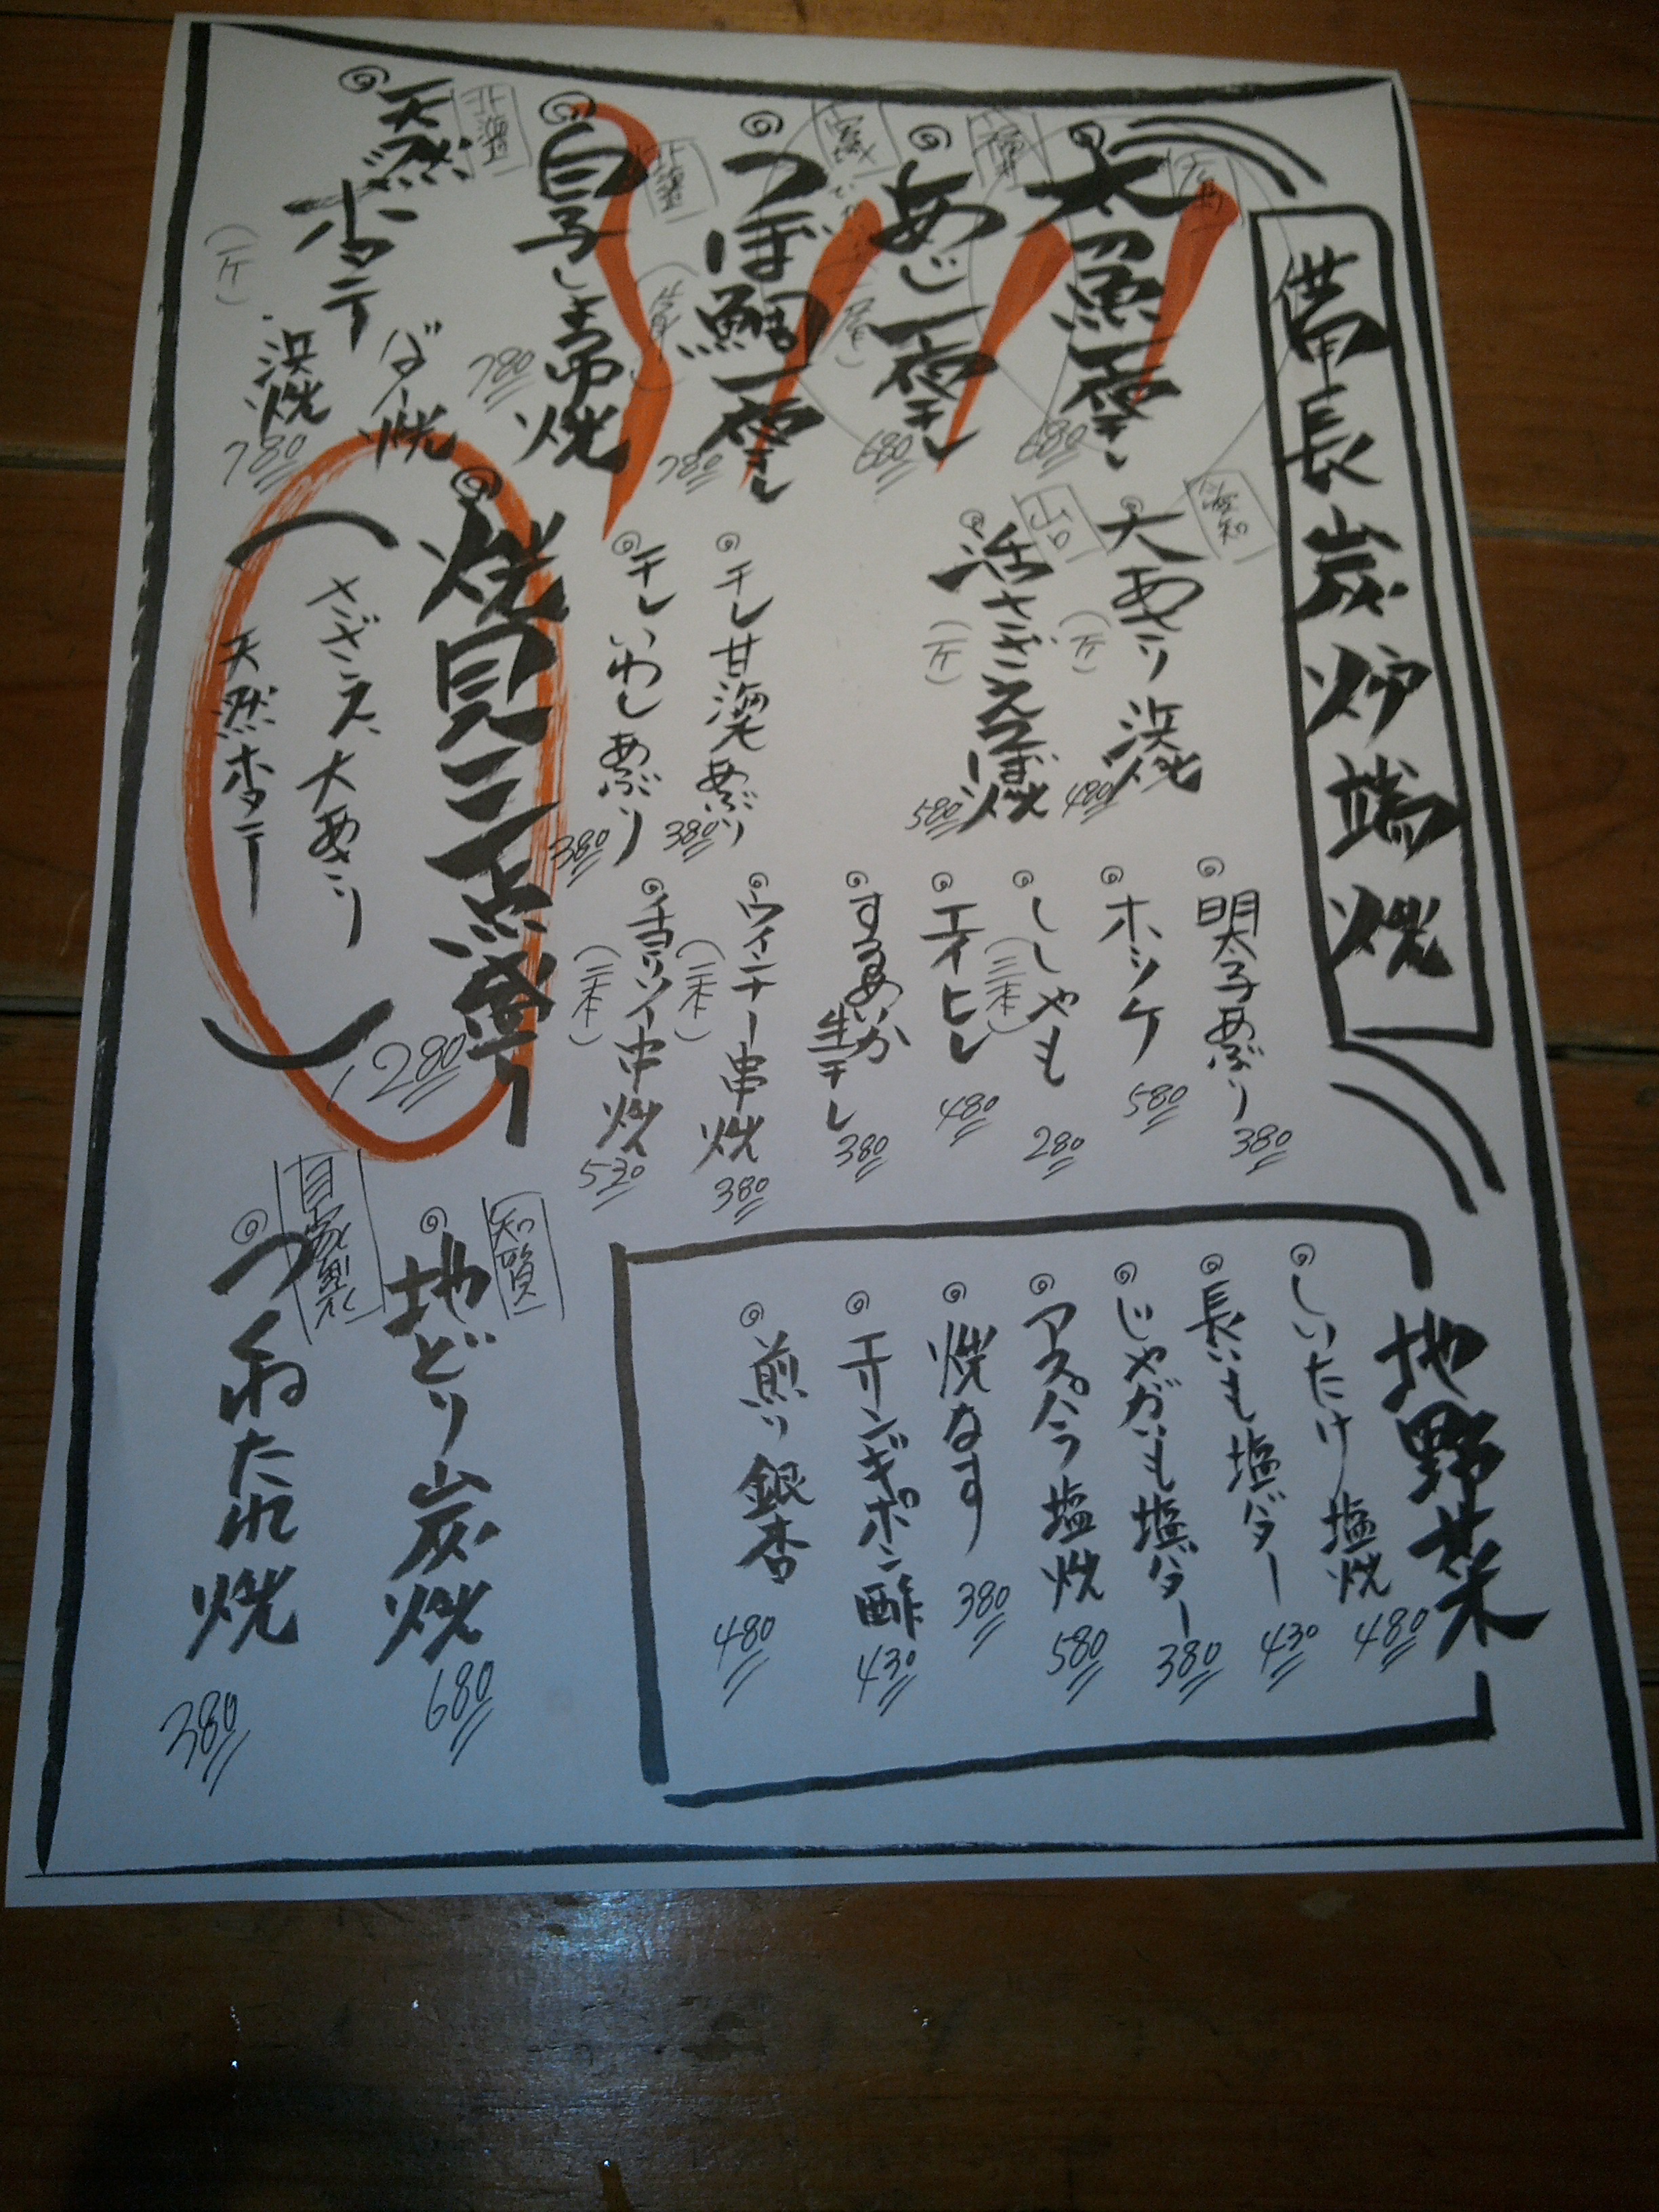 備長炭炉端焼
太魚一夜干し
680
福井
あじ一夜干し
680
つぼ鯛一夜干し
780
北海道
白子しょう油焼
780
北海道
天然ホタテ
バター焼
浜焼
(一ケ)
780
愛知
大あさり浜焼
(一ケ)
480
山口
活さざえつぼ焼
(一ケ)
580
干し甘海老あぶり
380
干しいわしあぶり
380
焼貝三点盛り
さざえ、大あさり
天然ホタテ
1280
明太子あぶり
380
ホッケ
580
ししゃも
(三本)
280
エイヒレ
480
するめいか
生干し
380
ウインナー串焼
(二本)
380
チョリソー串焼
(二本)
530
地野菜
しいたけ塩焼
480
長いも塩バター
430
じゃがいも塩バター
380
アスパラ塩焼
580
焼なす
380
エリンギポン酢
430
煎り銀杏
480
知覧
地どり炭焼
680
自家製
つくねたれ焼
380